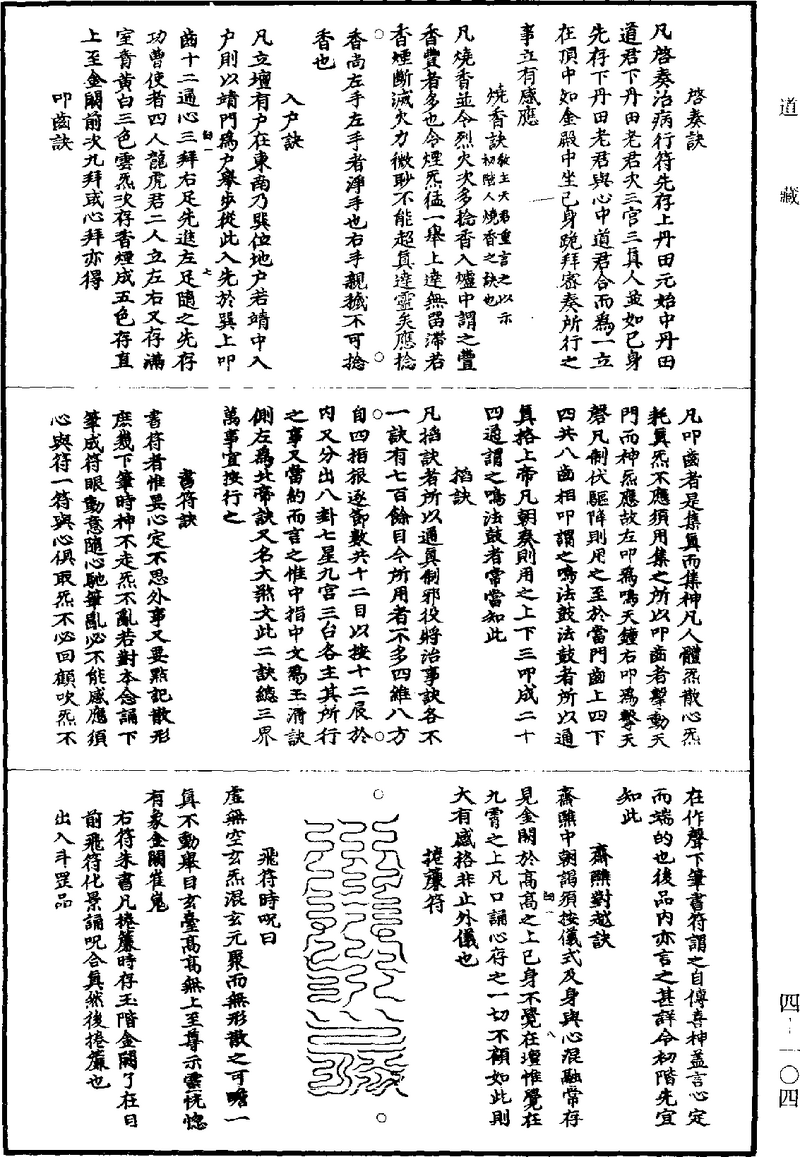 道藏
四-一〇四
啓奏訣
凡啓奏治病行符先存上丹田元始中丹田
道君下丹田老君次三官三真人並如己身
先存下丹田老君與心中道君合而為一立
在頂中如金殿中坐己身跪拜審奏所行之
事立有感應
燒香訣教主天君重言之以示初階人燒香之訣也
凡燒香並令烈火次多捻香入爐中謂之豐
香豐者多也令煙炁猛一舉上達無留滯若
香煙斷滅火力微眇不能超真達靈矣應捻
香尚左手左手者淨手也右手親穢不可捻
香也
入戶訣
凡立壇有戶在東南乃巽位地戶若靖中入
戶則以靖門為戶舉步從此入先於巽上叩
齒十二通心三拜右足先進左足隨之先存
功曹使者四人龍虎君二人立左右又存滿
室青黃白三色雲炁次存香煙成五色存直
上至金闕前次九拜或心拜亦得
叩齒訣
凡叩齒者是集真而集神凡人體炁散心炁
耗真炁不應須用集之所以叩齒者擊動天
門而神炁應故左叩為鳴天鐘右叩為擊天
磬凡制伏驅降則用之至於當門齒上四下
四共八齒相叩謂之鳴法鼓法鼓者所以通
真格上帝凡朝奏則用之上下三叩成二十
四通謂之鳴法鼓者常當如此
掐訣
凡掐訣者所以通真制邪役將治事訣各不
一訣有七百餘目今所用者不多四維八方
自四指根逐節數共十二目以按十二辰於
內又分出八卦七星九宮三台各主其所行
之事又當約而言之惟中指中文為玉清訣
側左為北帝訣又名大煞文此二訣總三界
萬事宜按行之
書符訣
書符者惟要心定不思外事又要點記散形
庶幾下筆時神不走炁不亂若對本念誦下
筆成符眼動意隨心馳筆亂必不能感應須
心與符一符與心俱取炁不必回顧吹炁不
在作聲下筆書符謂之自傳喜神蓋言心定
而端的也後品內亦言之甚詳今初階先宜
如此
齋醮對越訣
齋醮中朝謁須按儀式及身與心混融常存
見金闕於高高之上己身不覺在壇惟覺在
九霄之上凡口誦心存之一切不顧如此則
大有感格非止外儀也
捲簾符
飛符時呪曰
虛無空玄炁混玄元聚而無形散之可瞻一
真不動舉目玄臺高高無上至尊示靈恍惚
有象金闕崔嵬
右符朱書凡捲簾時存玉階金闕了在目
前飛符化景誦呪合真然後捲簾也
出入斗罡品